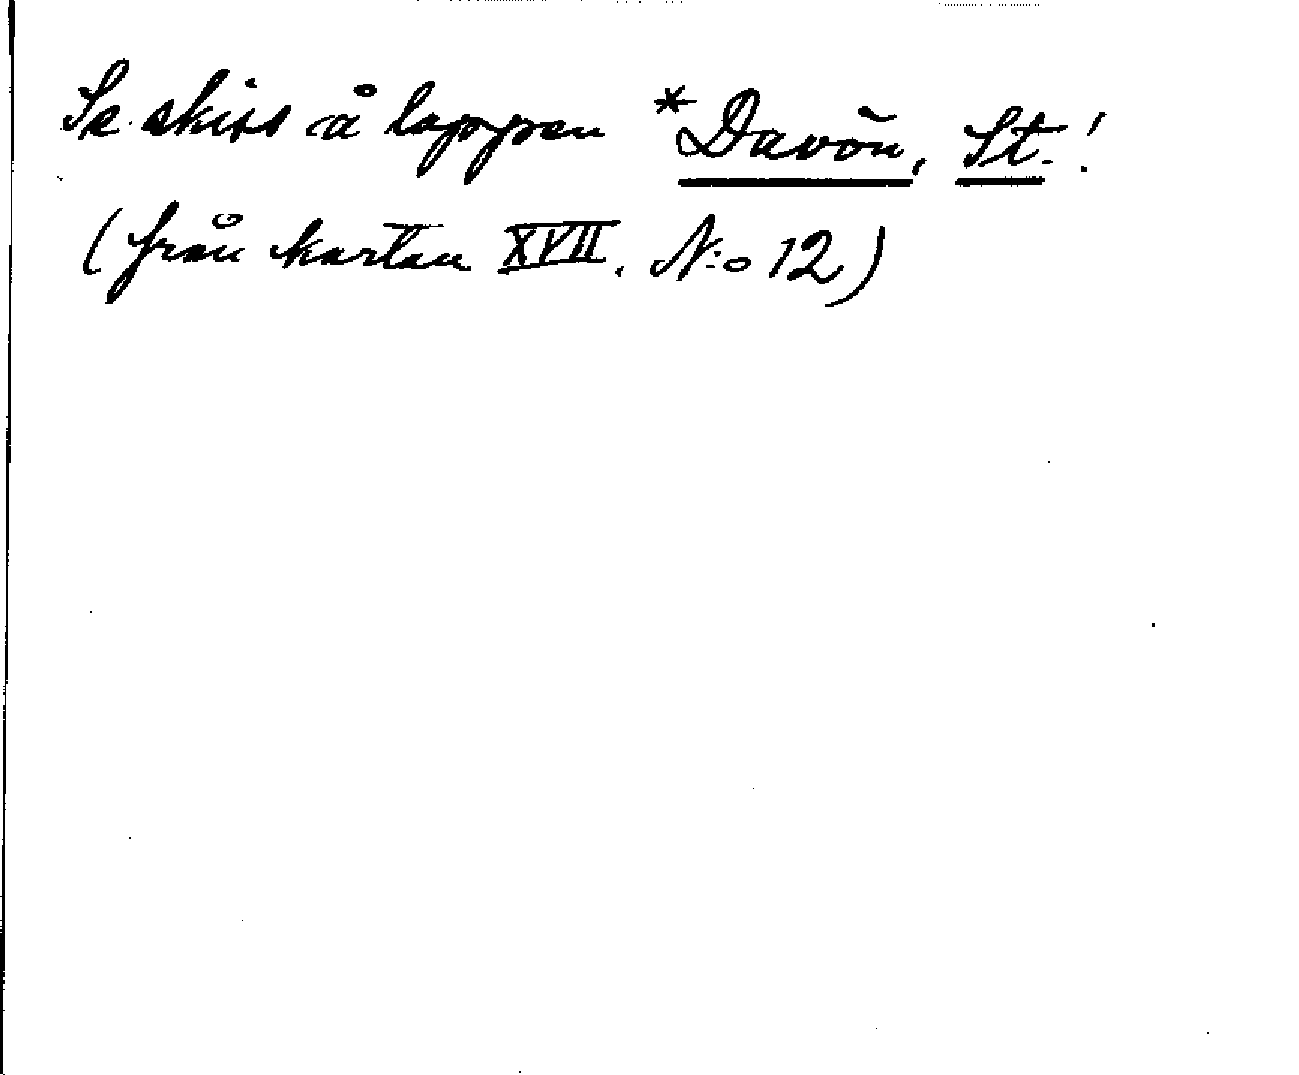 Se skiss å lappen *Davön, St.!
(från kartan XVII. N:o 12)